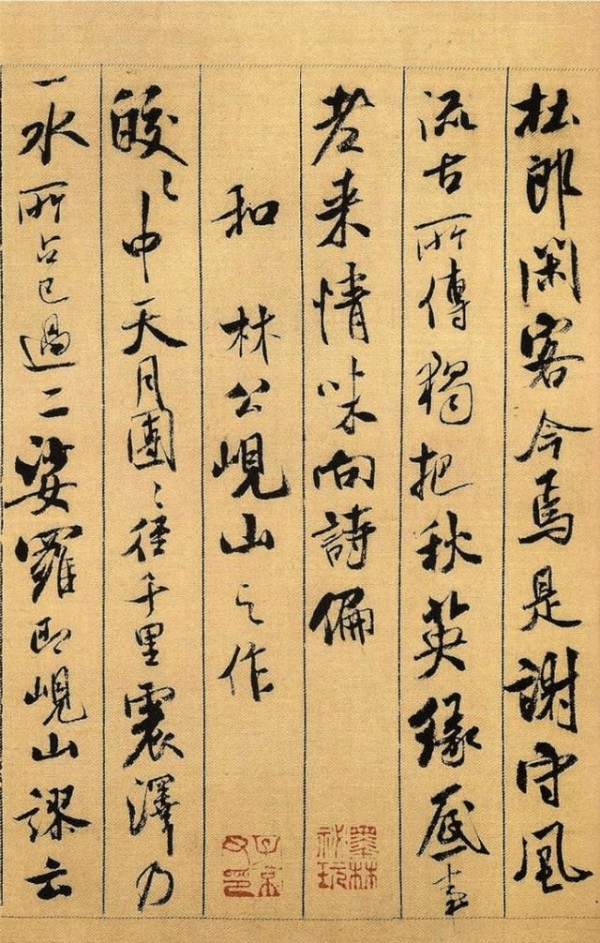 杜郎閑客今焉是謝守風
流古所傳獨把秋英緣底事
老來情味向詩偏
和 林公峴山之作
皎〻中天月團〻徑千里震澤乃
一水所占已過二娑羅即峴山謬云
墨林祕玩
子京父印